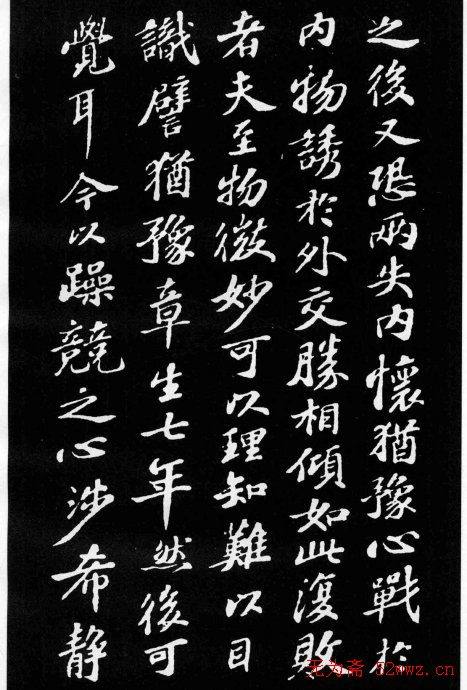 之後又恐兩失内懷猶豫心戰於
内物誘於外交勝相傾如此復敗
者夫至物微妙可以理知難以目
識譬猶豫章生七年然後可
覺耳今以躁競之心涉希静
无为斋 52mwz.cn